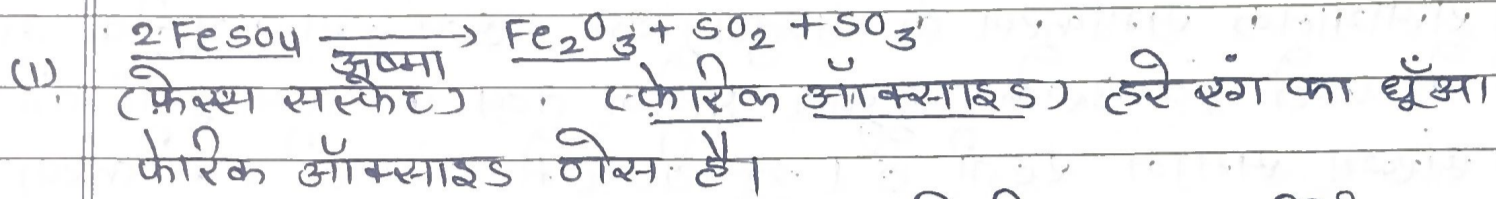 2 FeSO4 ⟶ Fe2O3 + SO2 + SO3
ऊष्मा
(1). (फ़ेरस सल्फेट) (फ़ेरिक ऑक्साइड) हरे रंग का धूँआ
फेरिक ऑक्साइड गैस है।